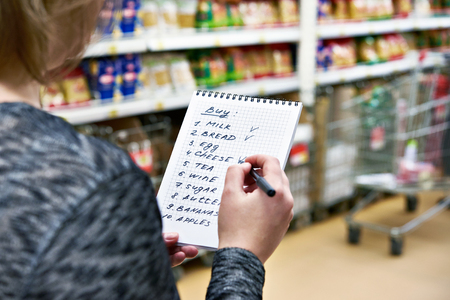 Buy:
1. MILK
2. BREAD
3. EGG
4. CHEESE
5. TEA
6. WINE
7. SUGAR
8. BUTTER
9. BANANAS
10. APPLES